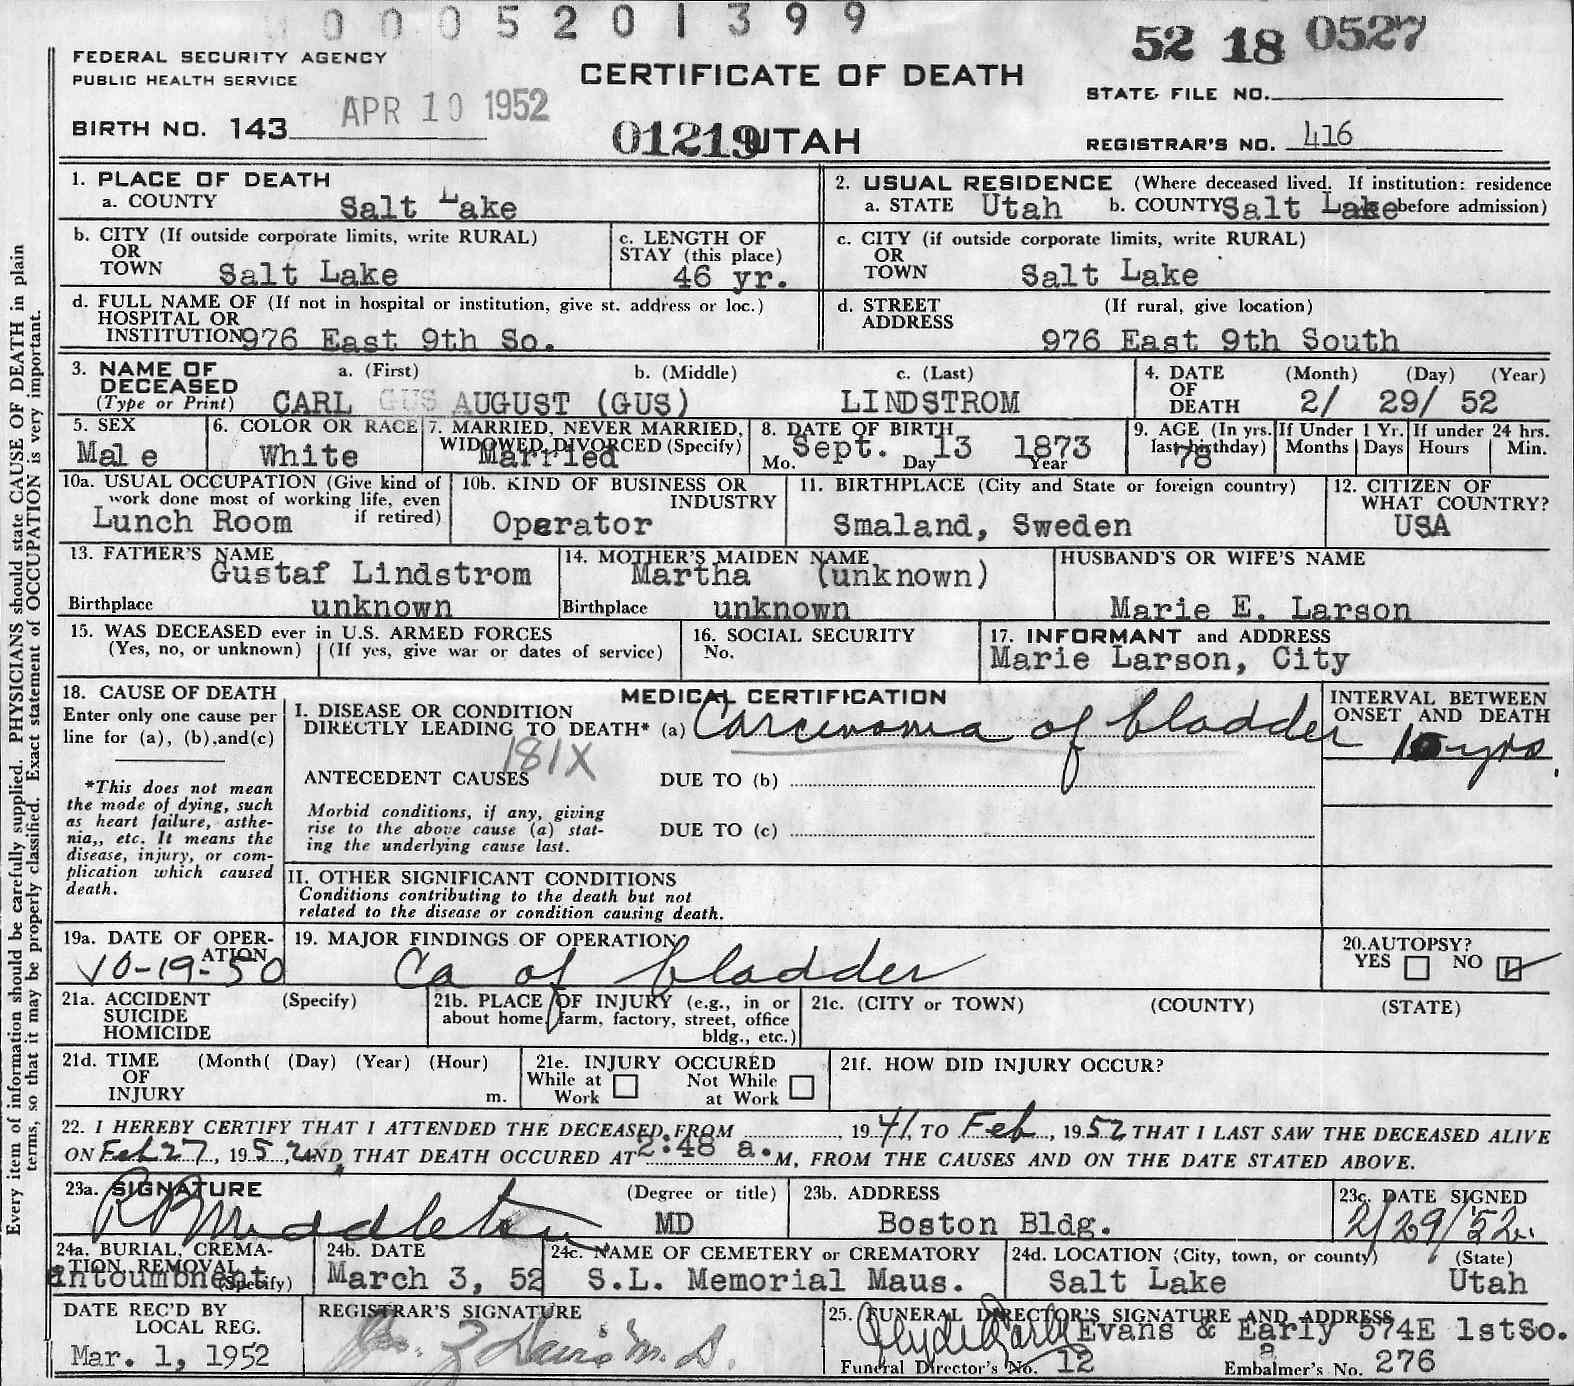 0005201399
52 18 0527
FEDERAL SECURITY AGENCY
PUBLIC HEALTH SERVICE
CERTIFICATE OF DEATH
STATE FILE NO.
APR 10 1952
BIRTH NO. 143
01219 UTAH
REGISTRAR'S NO. 416
1. PLACE OF DEATH
a. COUNTY Salt Lake
2. USUAL RESIDENCE (Where deceased lived. If institution: residence
a. STATE Utah b. COUNTY Salt Lake before admission)
b. CITY (If outside corporate limits, write RURAL)
OR
TOWN Salt Lake
c. LENGTH OF
STAY (this place)
46 yr.
c. CITY (if outside corporate limits, write RURAL)
OR
TOWN Salt Lake
d. FULL NAME OF (If not in hospital or institution, give st. address or loc.)
HOSPITAL OR
INSTITUTION 976 East 9th So.
d. STREET (If rural, give location)
ADDRESS
976 East 9th South
3. NAME OF a. (First) b. (Middle) c. (Last)
DECEASED
(Type or Print) CARL GUS AUGUST (GUS) LINDSTROM
4. DATE (Month) (Day) (Year)
OF
DEATH 2/ 29/ 52
5. SEX
Male
6. COLOR OR RACE
White
7. MARRIED, NEVER MARRIED,
WIDOWED, DIVORCED (Specify)
Married
8. DATE OF BIRTH
Sept. 13 1873
Mo. Day Year
9. AGE (In yrs.
last birthday)
78
If Under 1 Yr.
Months Days
If under 24 hrs.
Hours Min.
10a. USUAL OCCUPATION (Give kind of
work done most of working life, even
if retired)
Lunch Room
10b. KIND OF BUSINESS OR
INDUSTRY
Operator
11. BIRTHPLACE (City and State or foreign country)
Smaland, Sweden
12. CITIZEN OF
WHAT COUNTRY?
USA
13. FATHER'S NAME
Gustaf Lindstrom
Birthplace unknown
14. MOTHER'S MAIDEN NAME
Martha (unknown)
Birthplace unknown
HUSBAND'S OR WIFE'S NAME
Marie E. Larson
15. WAS DECEASED ever in U.S. ARMED FORCES
(Yes, no, or unknown) (If yes, give war or dates of service)
16. SOCIAL SECURITY
No.
17. INFORMANT and ADDRESS
Marie Larson, City
18. CAUSE OF DEATH
Enter only one cause per
line for (a), (b),and(c)
*This does not mean
the mode of dying, such
as heart failure, asthe-
nia,, etc. It means the
disease, injury, or com-
plication which caused
death.
MEDICAL CERTIFICATION
I. DISEASE OR CONDITION
DIRECTLY LEADING TO DEATH* (a) Carcinoma of bladder
181X
ANTECEDENT CAUSES DUE TO (b)
Morbid conditions, if any, giving
rise to the above cause (a) stat-
ing the underlying cause last.
DUE TO (c)
II. OTHER SIGNIFICANT CONDITIONS
Conditions contributing to the death but not
related to the disease or condition causing death.
INTERVAL BETWEEN
ONSET AND DEATH
yrs.
19a. DATE OF OPER-
ATION
10-19-50
19. MAJOR FINDINGS OF OPERATION
Ca of bladder
20.AUTOPSY?
YES NO
21a. ACCIDENT (Specify)
SUICIDE
HOMICIDE
21b. PLACE OF INJURY (e.g., in or
about home, farm, factory, street, office
bldg., etc.)
21c. (CITY or TOWN) (COUNTY) (STATE)
21d. TIME (Month( (Day) (Year) (Hour)
OF
INJURY m.
21e. INJURY OCCURED
While at Not While
Work at Work
21f. HOW DID INJURY OCCUR?
22. I HEREBY CERTIFY THAT I ATTENDED THE DECEASED FROM , 1941, TO Feb, 1952 THAT I LAST SAW THE DECEASED ALIVE
ON Feb 27, 1952, AND THAT DEATH OCCURED AT 2:48 a.M, FROM THE CAUSES AND ON THE DATE STATED ABOVE.
23a. SIGNATURE (Degree or title)
Middleton MD
23b. ADDRESS
Boston Bldg.
23c. DATE SIGNED
2/29/52
24a. BURIAL, CREMA-
TION REMOVAL (Specify)
entoumbment
24b. DATE
March 3, 52
24c. NAME OF CEMETERY or CREMATORY
S.L. Memorial Maus.
24d. LOCATION (City, town, or county) (State)
Salt Lake Utah
DATE REC'D BY
LOCAL REG.
Mar. 1, 1952
REGISTRAR'S SIGNATURE
Davis M.D.
25. FUNERAL DIRECTOR'S SIGNATURE AND ADDRESS
Evans & Early 574E 1stSo.
Funeral Director's No. 12 Embalmer's No. 276
Every item of information should be carefully supplied. PHYSICIANS should state CAUSE OF DEATH in plain
terms, so that it may be properly classified. Exact statement of OCCUPATION is very important.